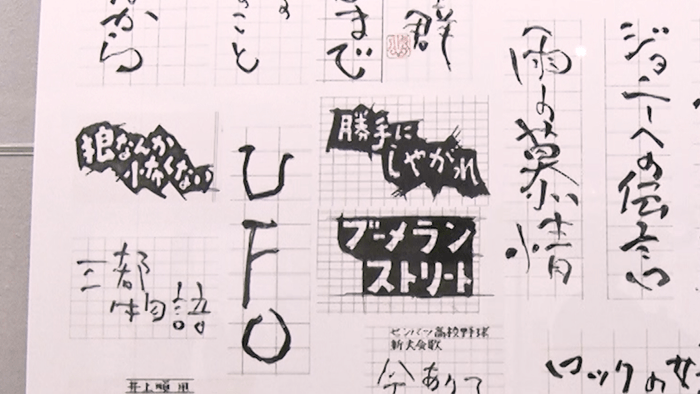 から
こと
まで
群
雨の慕情
ジョニーへの伝言
狼なんか
怖くない
UFO
勝手に
しやがれ
ブーメラン
ストリート
三都
物語
センバツ高校野球
新大会歌
今ありて
ロックの
井上順用